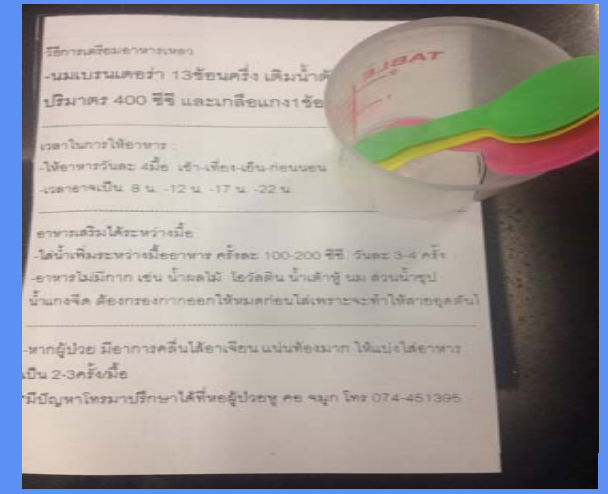 วิธีการเตรียมอาหารเหลว
-นมเบรนเดอร่า 13ช้อนครึ่ง เติมน้ำ
ปริมาตร 400 ซีซี และเกลือแกง1ช้อ
เวลาในการให้อาหาร :
-ให้อาหารวันละ 4มื้อ เช้า-เที่ยง-เย็น-ก่อนนอน
-เวลาอาจเป็น 8 น. -12 น. -17 น. -22 น.
อาหารเสริมได้ระหว่างมื้อ
-ใส่น้ำเพิ่มระหว่างมื้ออาหาร ครั้งละ 100-200 ซีซี วันละ 3-4 ครั้ง
-อาหารไม่มีกาก เช่น น้ำผลไม้ โอวัลติน น้ำเต้าหู้ นม ส่วนน้ำซุป
น้ำแกงจืด ต้องกรองกากออกให้หมดก่อนใส่เพราะจะทำให้สายอุดตันไ
-หากผู้ป่วย มีอาการคลื่นไส้อาเจียน แน่นท้องมาก ให้แบ่งใส่อาหาร
เป็น 2-3ครั้ง/มื้อ
*มีปัญหาโทรมาปรึกษาได้ที่หอผู้ป่วยหู คอ จมูก โทร 074-451395
TABLE